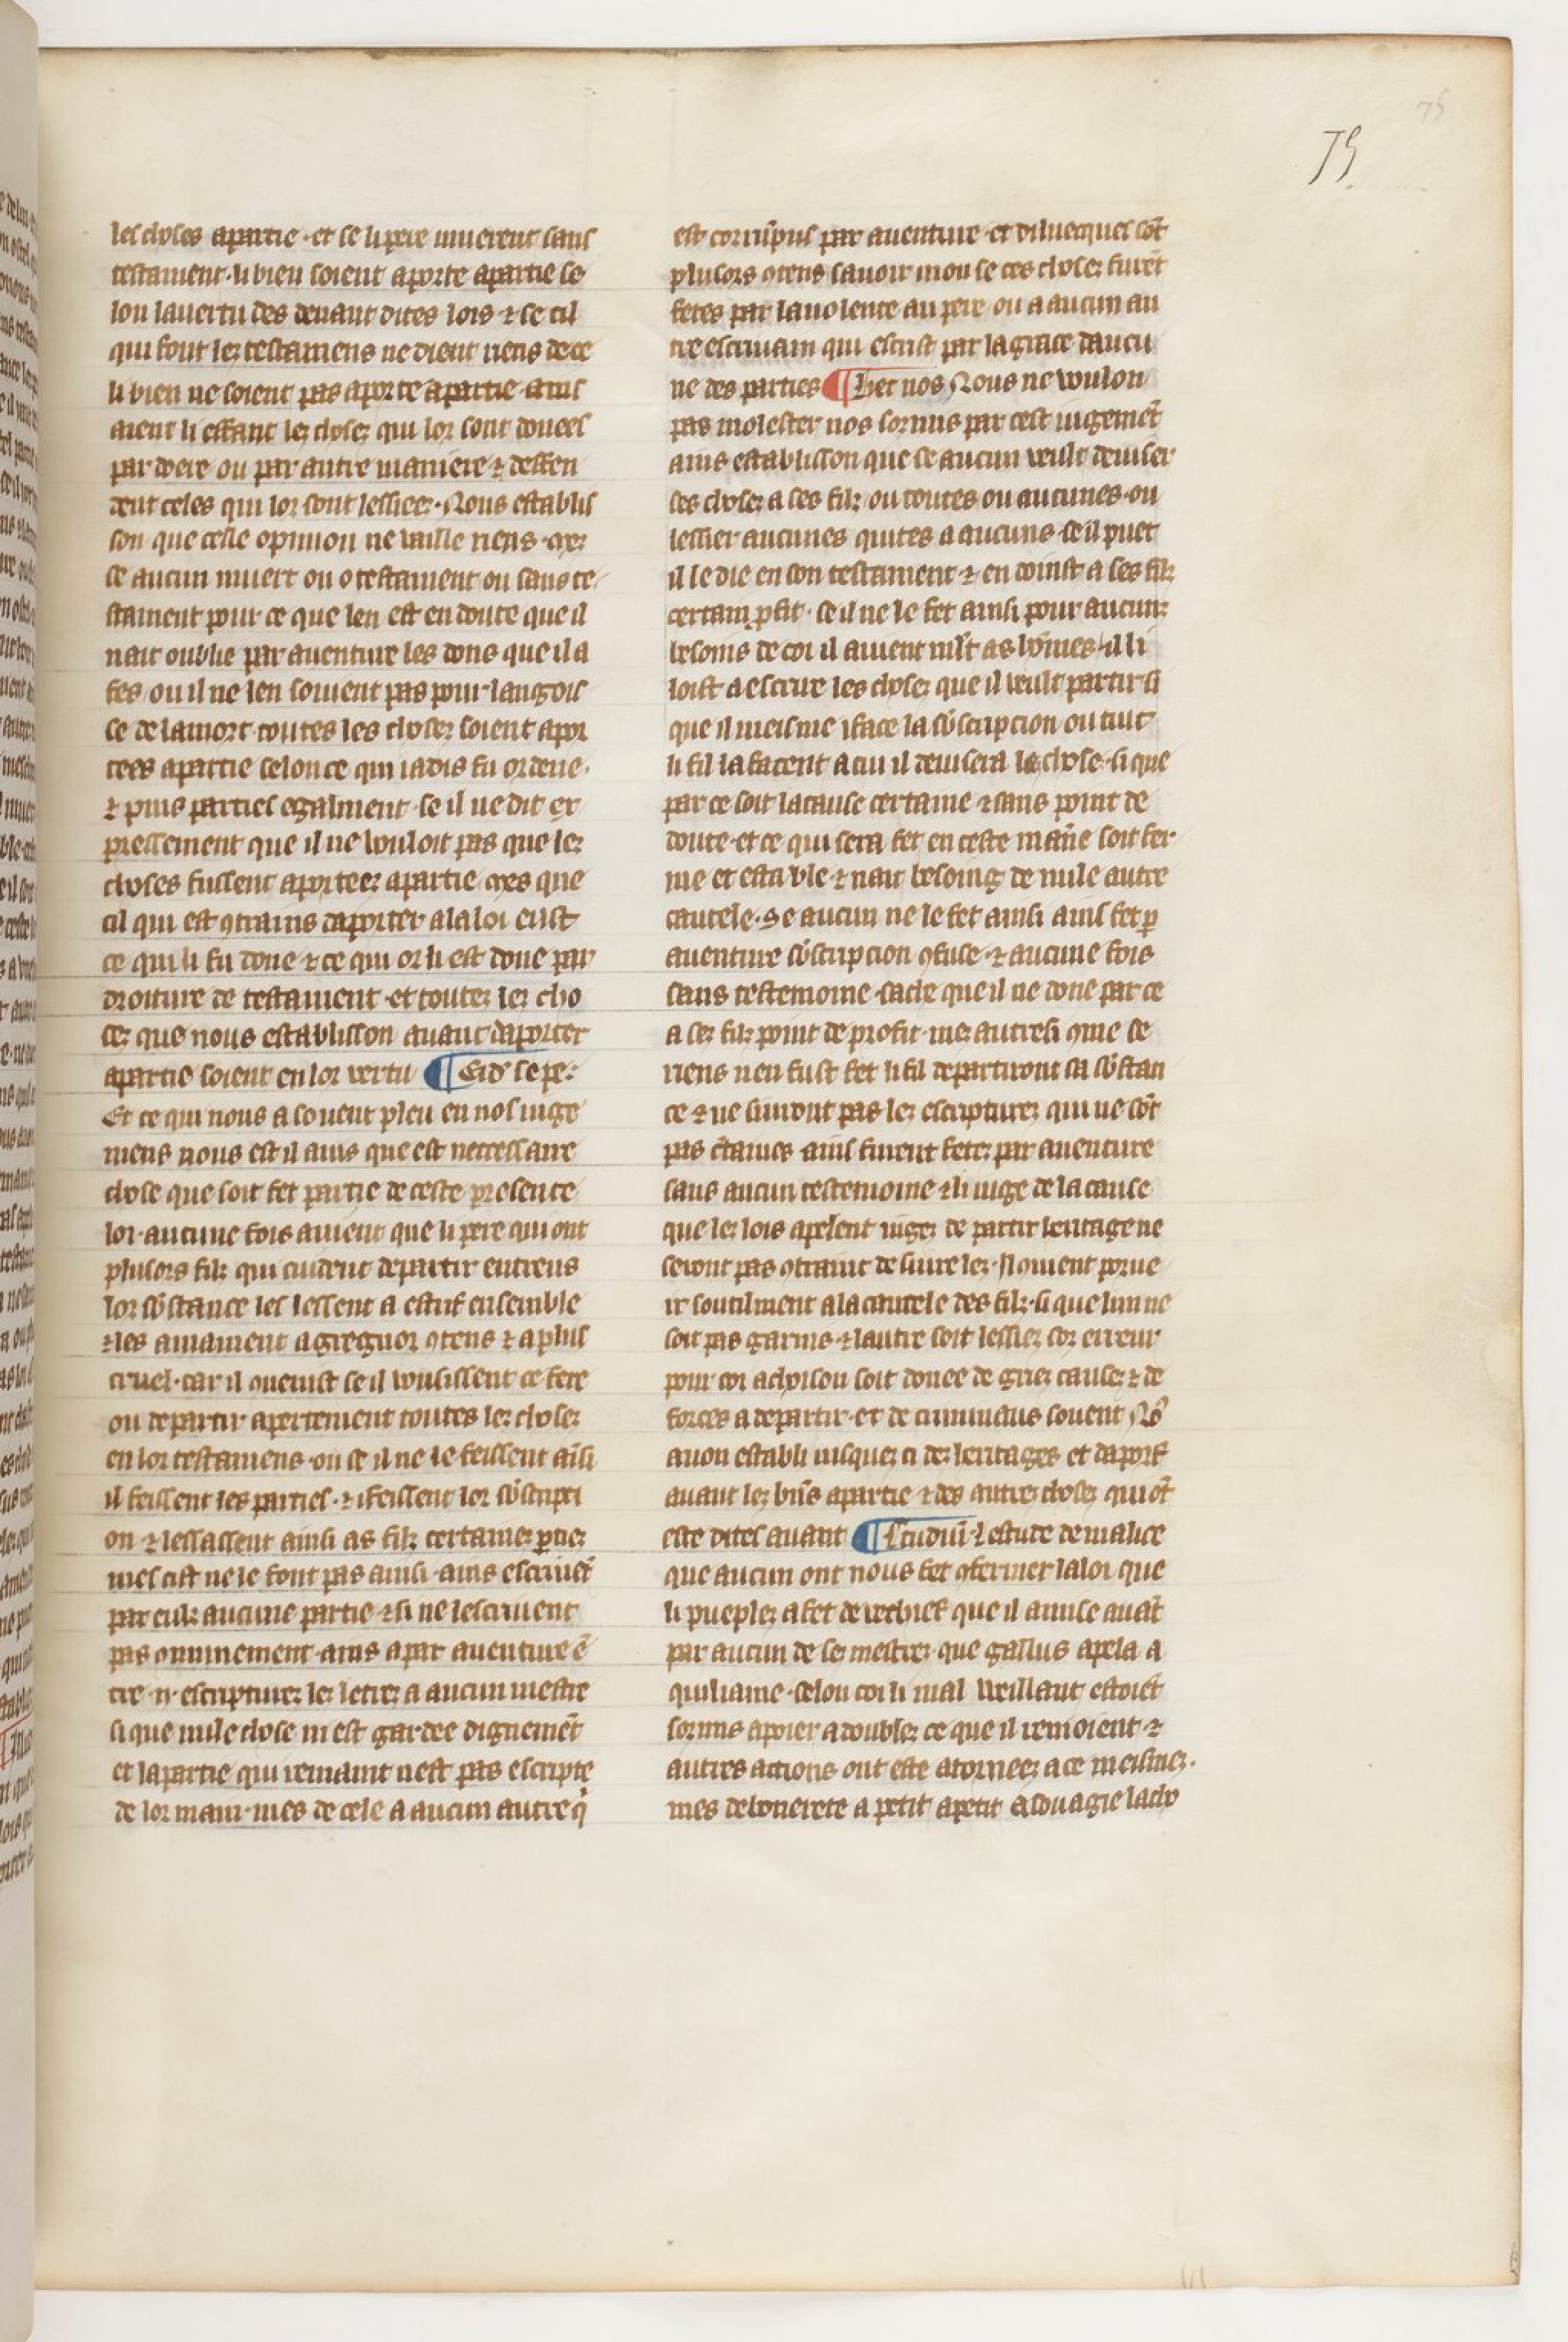 75
75.
les choses apartie · et se li pere muerent sans
testament · li bien soient aporte apartie se
lon la uertu des deuant dites lois ⁊ se cil
qui font lez testamens ne dient riens de ce
li bien ne soient pas aporte apartie · ains
aient li effant lez chosez qui lor sont donees
par doere ou par autre maniere ⁊ deffen
dent celes qui lor sont lessiees · Nous establis
son que celle opinion ne vaille riens · mez
se aucun muert ou o testament ou sans te
stament pour ce que len est en doute que il
nait oublie par auenture les dons que il a
fes · ou il ne len souient pas pour langois
se de la mort · toutes les chosez soient apor
tees apartie selon ce qui iadis fu ordene ·
⁊ puis parties egalment · se il ne dit ex
pressement que il ne vouloit pas que lez
choses fussent aporteez apartie · mes que
cil qui est ꝯtrains daporter ala loi eust
ce qui li fu done ⁊ ce qui or li est done par
droiture de testament · et toutez lez cho
sez que nous establisson auant daporter
apartie soient en lor vertu ¶ Eid̾ sepe ·
Et ce qui nous a souent pleu en nos iuge
mens nous est il auis que est necessaire
chose que soit fet partie de ceste presente
loi · aucune fois auient que li pere qui ont
plusors filz qui cuident departir entreus
lor sb̾stance les lessent a estrif ensemble
⁊ les amainent a gregnor ꝯtens ⁊ a plus
cruel · car il ꝯuenist se il vousissent ce fere
ou departir apertement toutes lez chosez
en lor testamens · ou se il ne le feissent aīsi
il feissent les parties · ⁊ i feissent lor sb̾scripti
on ⁊ lessassent ainsi as filz certainez ꝑtiez
mes cist ne le font pas ainsi · ains escriuēt
par eulz aucune partie ⁊ si ne lescriuent
pas ꝯmunement · ains apar auenture ē
tre ·ii· escripturez lez letrez a aucun mestre
si que nule chose ni est gardee dignemēt
et la partie qui remaint nest pas escripte
de lor main · mes de cele a aucun autre q̇
est corrūpus par auenture · et diluecques sōt
plusors ꝯtens sauoir mon se ces chosez furēt
fetes par la uolente au pere ou a aucun au
tre escriuain qui escrist par la grace daucu
ne des parties ¶ Hec nos Nous ne voulon
pas molester nos sozmis par cest iugemēt
ains establisson que se aucun veult deuiser
ses chosez a ses filz ou toutes ou aucunes · ou
lessier aucunes quites a aucuns · se il puet
il le die en son testament ⁊ en doinst a ses filz
certain ꝓfit · se il ne le fet ainsi pour aucunz
besoins de coi il auient mlt̄ as hōmes · il li
loist a escrire les chosez que il veult partir si
que il meisme i face la sb̾scripcion ou tuit
li fil la facent a cui il deuisera la chose · si que
par ce soit la cause certaine ⁊ sans point de
doute · et ce qui sera fet en ceste mañe soit fer
me et estable ⁊ nait besoing de nule autre
cautele · Se aucun ne le fet ainsi ains fet ꝑ
auenture sb̾scripcion ꝯfuse · ⁊ aucune fois
sans testemoine · sache que il ne done par ce
a sez filz point de profit · mez autresi ꝯme se
riens nen fust fet li fil departiront sa sb̾stan
ce ⁊ ne siuront pas lez escripturez qui ne sōt
pas c̄taines · ains furent fetez par auenture
sans aucun testemoine ⁊ li iuge de la cause
que lez lois apelent iugez de partir heritage ne
seront pas ꝯtraint de siure lez · Il ꝯuient porue
ir soutilment ala cautele des filz · si que lun ne
soit pas garnis · ⁊ lautre soit lessiez soz erreur
pour coi achoison soit donee de griez causez ⁊ de
forces a departir · et de crimineus souent No᷒
auon establi iusquez ci dez heritages et daport̾
auant lez biēs apartie ⁊ des autrez chosez qui ōt
este dites auant ¶ Studiū · Lestude de malice
que aucun ont nous fet ꝯfermer la loi que
li pueplez a fet derechief que il a mise auāt
par aucun de sez mestrez · que gallus apela a
quiliaine · selon coi li mal veillant estoiēt
sozmis apoier a doublez ce que il renioient · ⁊
autres actions ont este atorneez a ce meismez ·
mes debonerete a petit apetit a souagie la cho